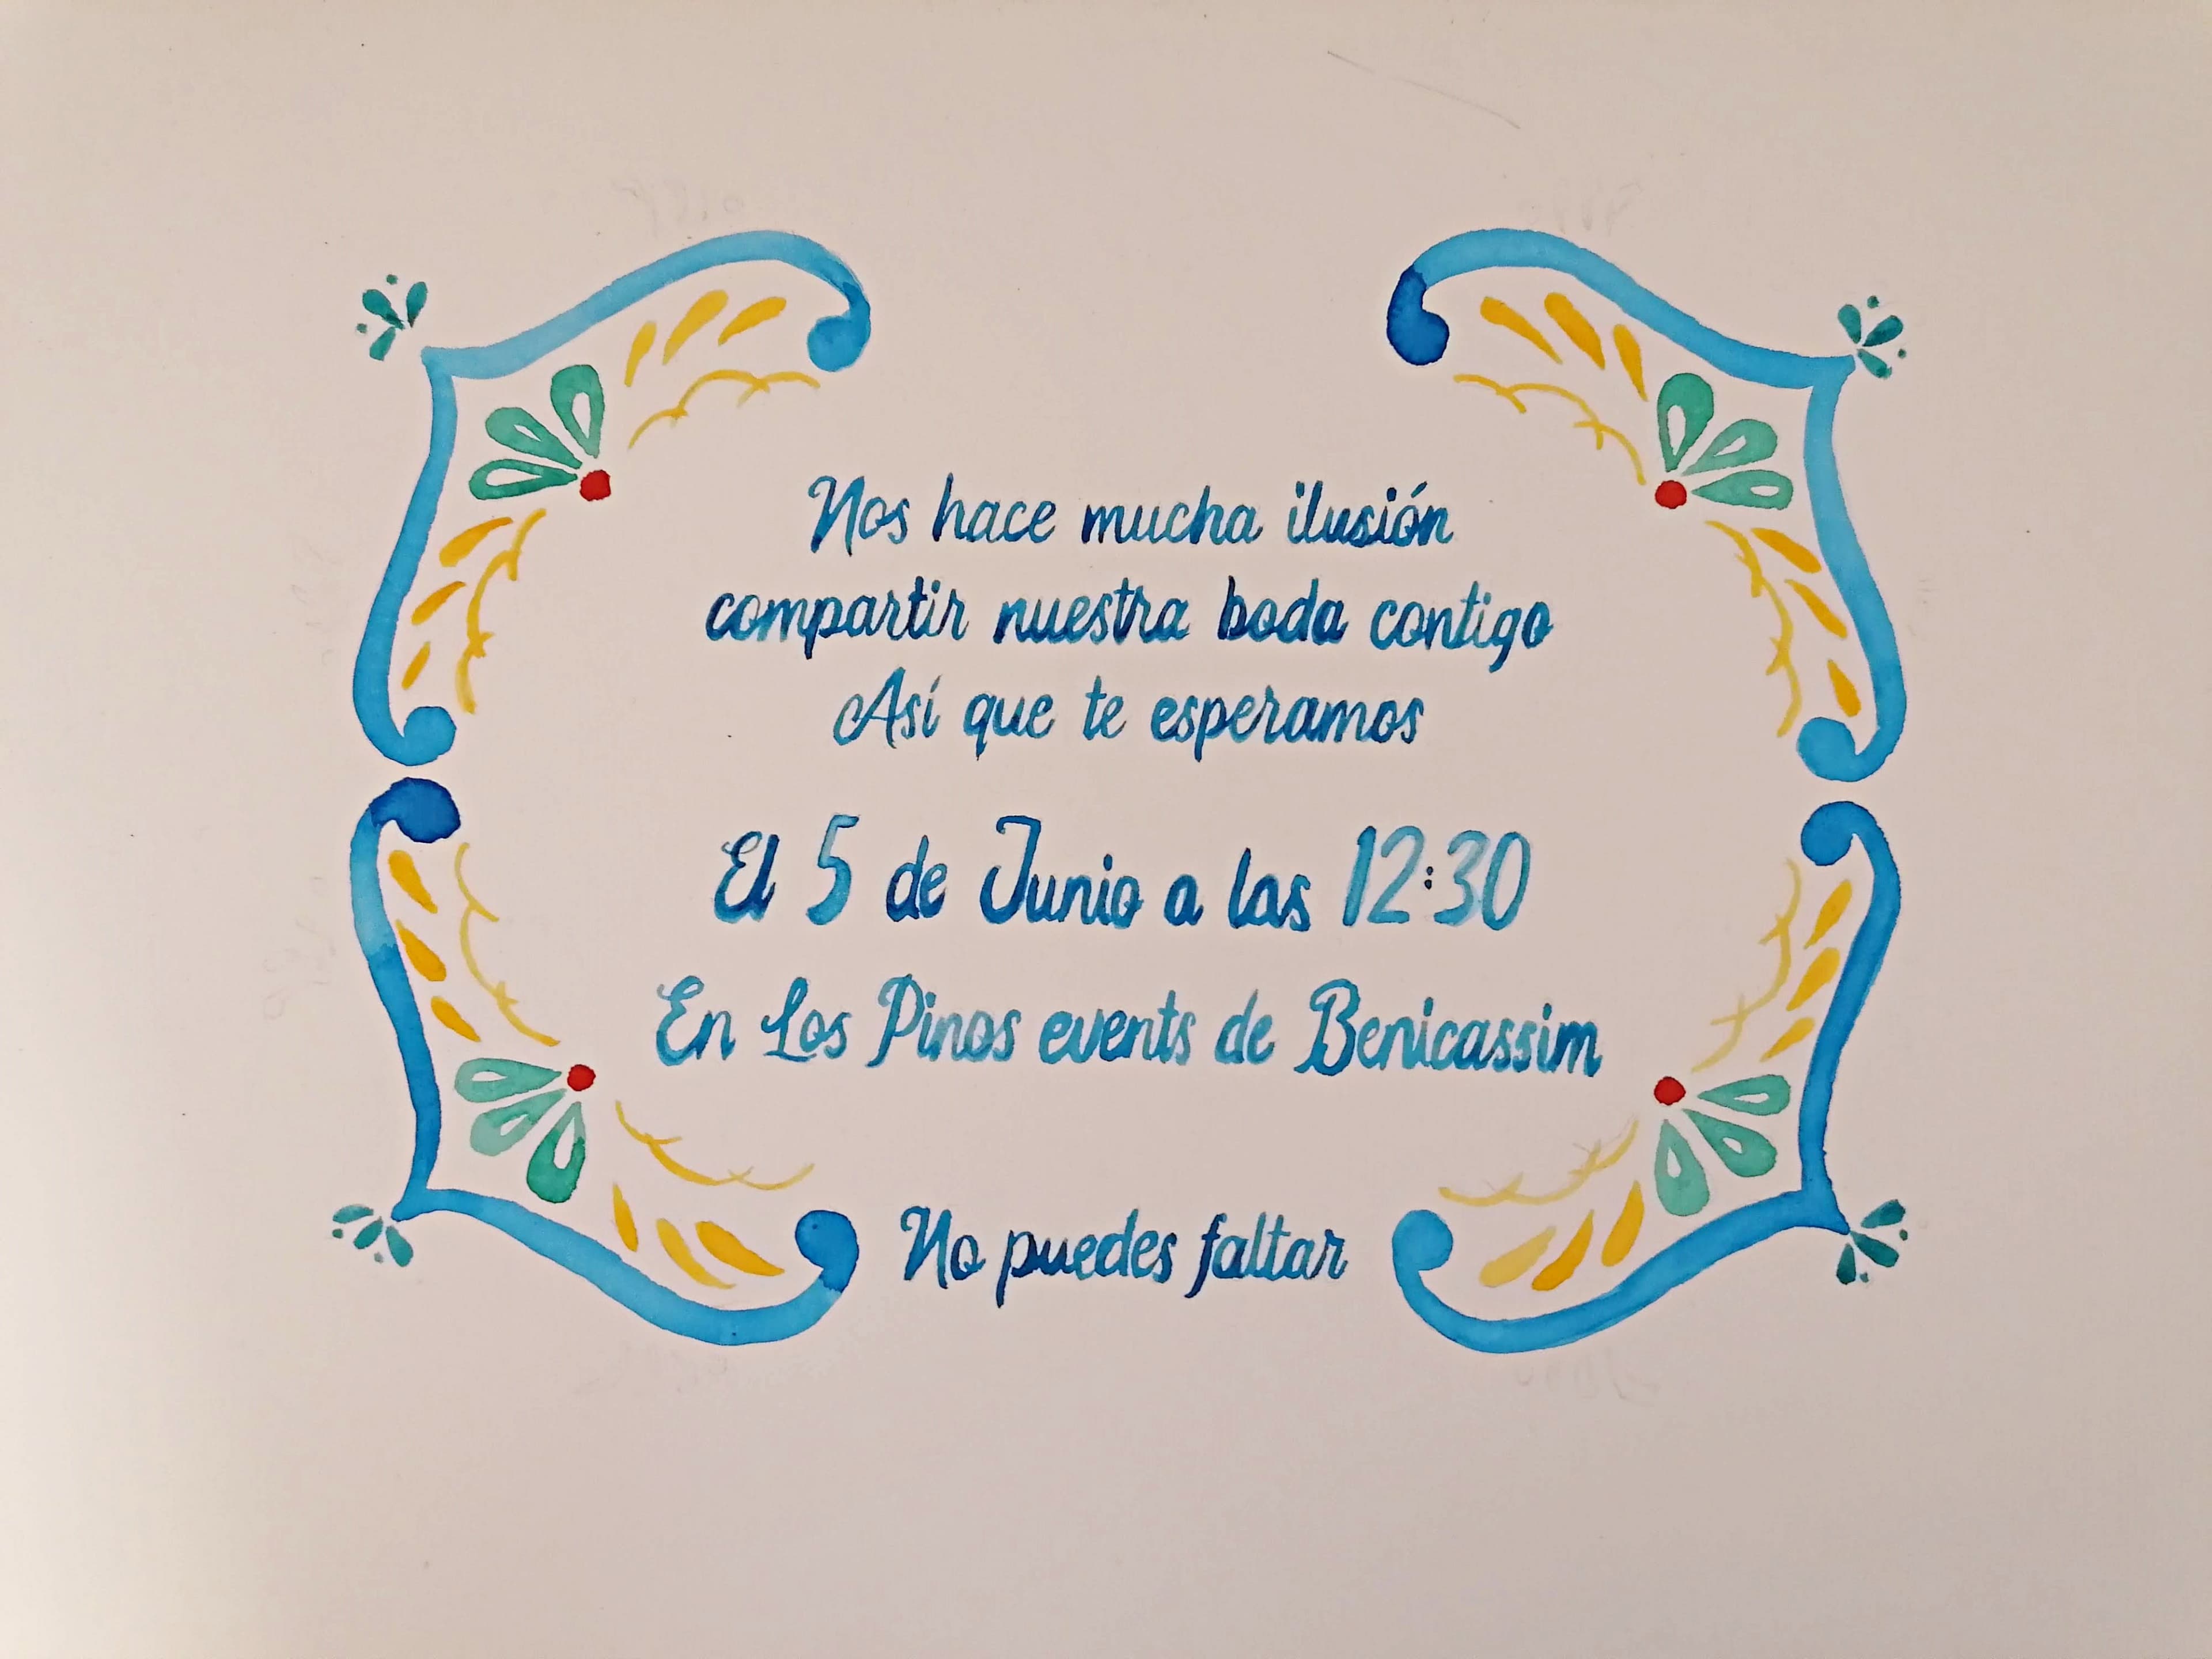 Nos hace mucha ilusión
compartir nuestra boda contigo
Así que te esperamos
El 5 de Junio a las 12:30
En Los Pinos events de Benicassim
No puedes faltar